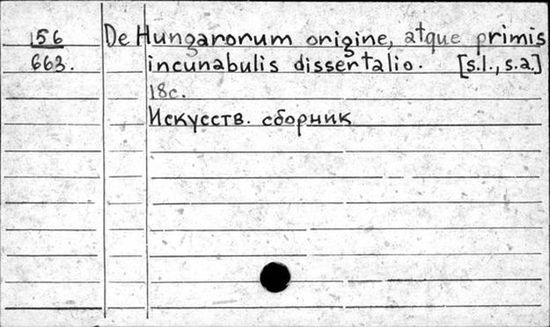 156 De Hungarorum origine, atque primis
663. incunabulis dissertalio. [s.l., s.a.]
18c.
Искусств. сборник